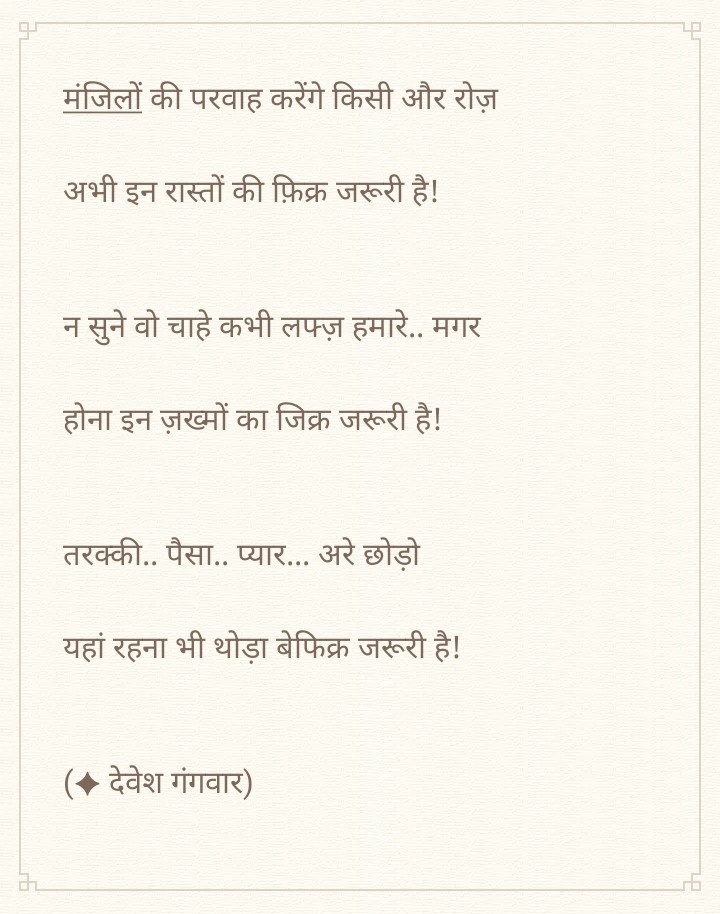 मंजिलों की परवाह करेंगे किसी और रोज़
अभी इन रास्तों की फ़िक्र जरूरी है!
न सुने वो चाहे कभी लफ्ज़ हमारे.. मगर
होना इन ज़ख्मों का जिक्र जरूरी है!
तरक्की.. पैसा.. प्यार... अरे छोड़ो
यहां रहना भी थोड़ा बेफिक्र जरूरी है!
(✦ देवेश गंगवार)